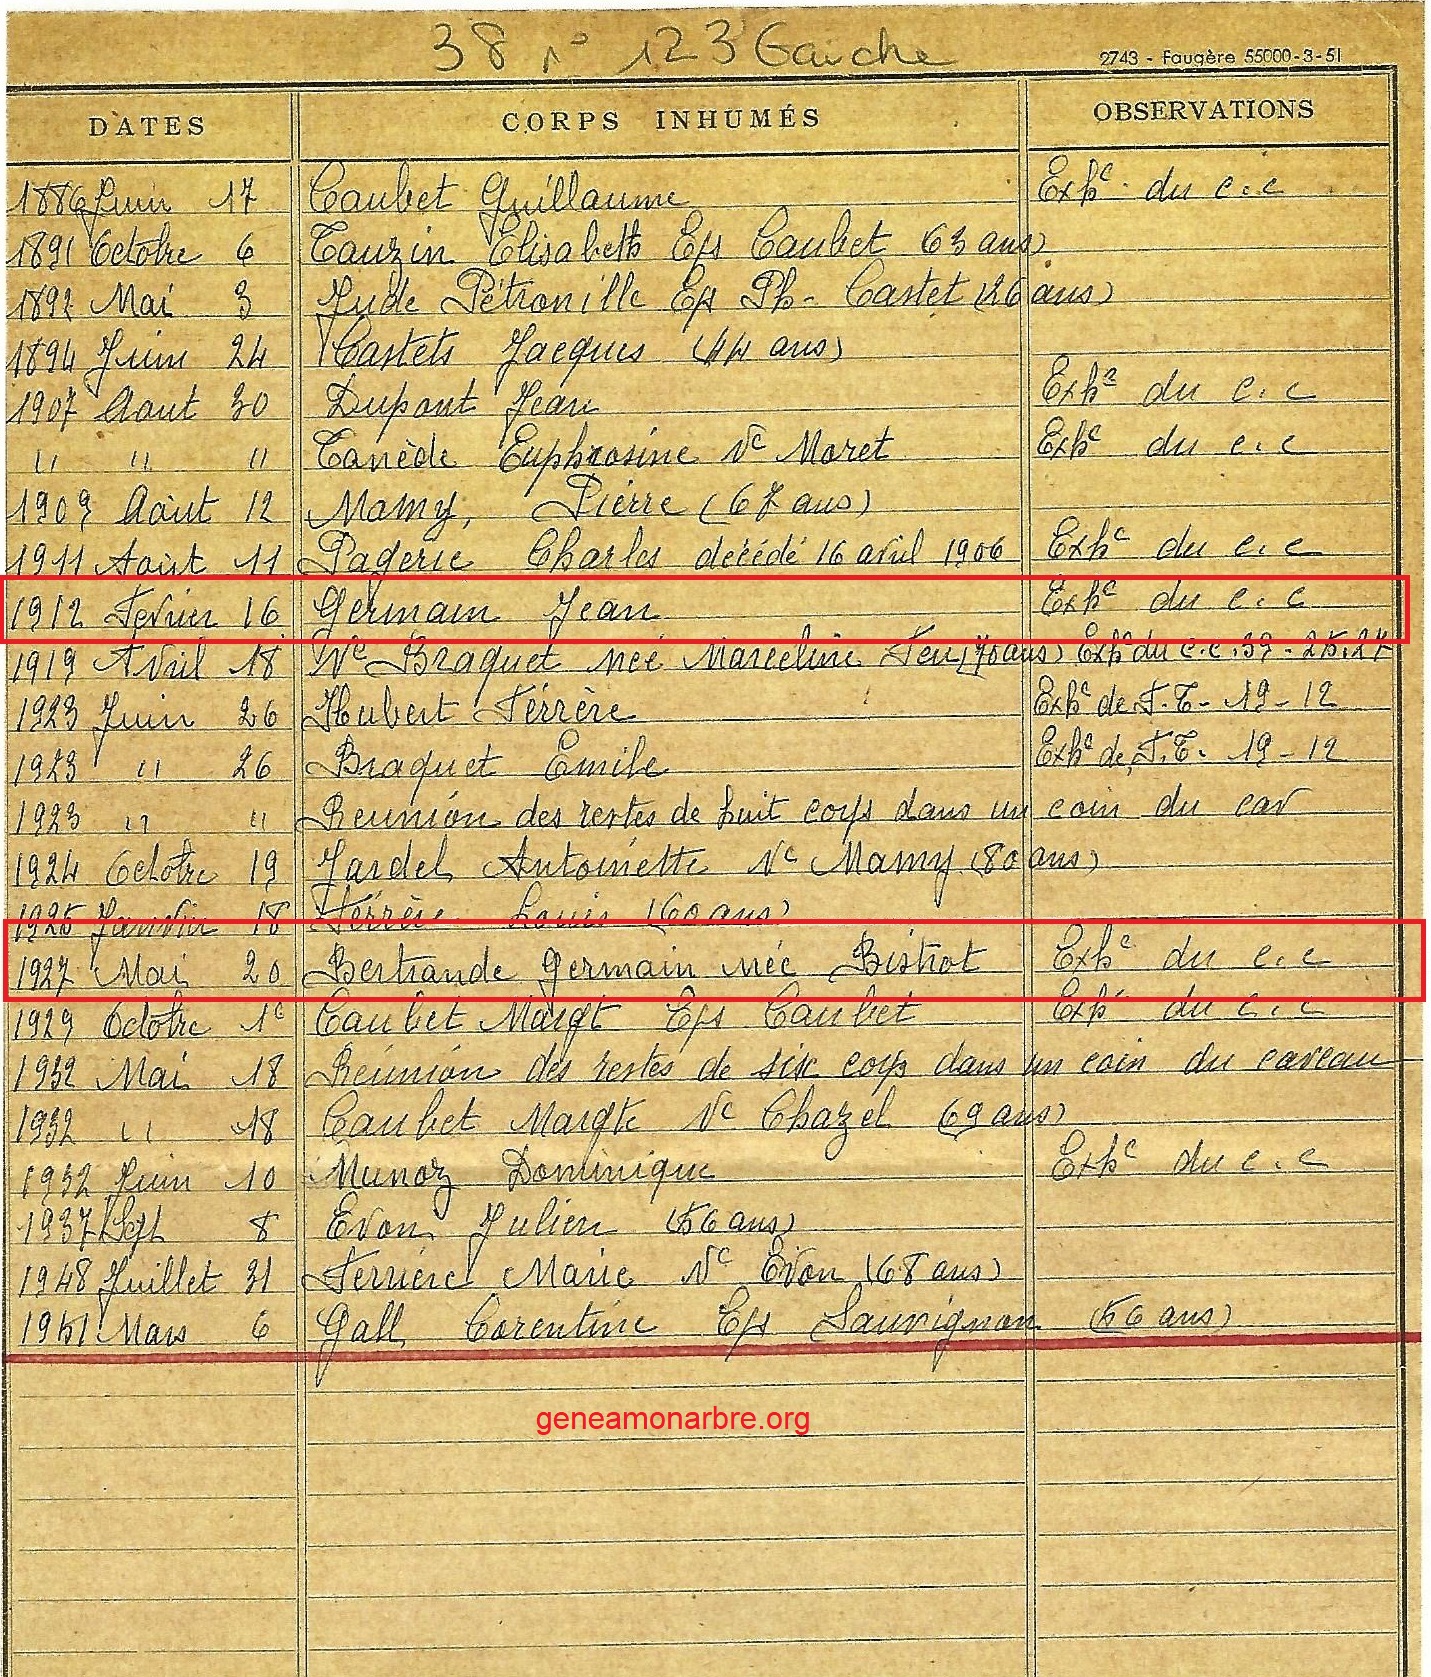 38 n° 123 Gauche
2743 - Faugère 55000-3-51
DATES CORPS INHUMÉS OBSERVATIONS
1886 Juin 17 Caubet Guillaume Exhᶜ du c.c
1891 Octobre 6 Tauzin Elisabeth Eps Caubet (63 ans)
1892 Mai 3 Jude Pétronille Eps Ph- Castet (26 ans)
1894 Juin 24 Castets Jacques (44 ans)
1907 Aout 30 Dupont Jean Exhᵉ du c.c
" " " Tanède Euphrosine Vᵉ Moret Exhᶜ du c.c
1909 Août 12 Mamy, Pierre (67 ans)
1911 Août 11 Pagerie Charles décédé 16 avril 1906 Exhᶜ du c.c
1912 Fevrier 16 Germain Jean Exhᶜ du c.c
1919 Avril 18 Vᵉ Braquet née Marceline Feu (70 ans) Exhᶜ du c.c. 39 - 25.27
1923 Juin 26 Hubert Férrère Exhᶜ de T.T - 19 - 12
1923 " 26 Braquet Emile Exhᶜ de T.T. 19 - 12
1923 " " Reunion des restes de huit corps dans un coin du cav
1924 Octobre 19 Jardel Antoinette Vᵉ Mamy (80 ans)
1925 Janvier 18 Férrère Louis (60 ans)
1927 Mai 20 Bertrande Germain née Bistrot Exhᶜ du c.c
1929 Octobre 1ᵉ Caubet Margt Eps Caubet Exhᶜ du c.c
1932 Mai 18 Réunion des restes de six corps dans un coin du caveau
1932 " 18 Caubet Margte Vᵉ Chazel (69 ans)
1932 Juin 10 Munoz Dominique Exhᶜ du c.c
1937 Sept 8 Evon Julien (56 ans)
1948 Juillet 31 Ferrière Marie Vᵉ Evon (68 ans)
1951 Mars 6 Gall Corentine Eps Sauvignon (56 ans)
geneamonarbre.org